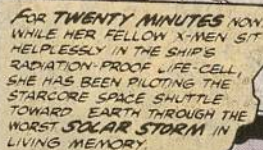 FOR TWENTY MINUTES NOW,
WHILE HER FELLOW X-MEN SIT
HELPLESSLY IN THE SHIP'S
RADIATION-PROOF LIFE-CELL,
SHE HAS BEEN PILOTING THE
STARCORE SPACE SHUTTLE
TOWARD EARTH THROUGH THE
WORST SOLAR STORM IN
LIVING MEMORY.